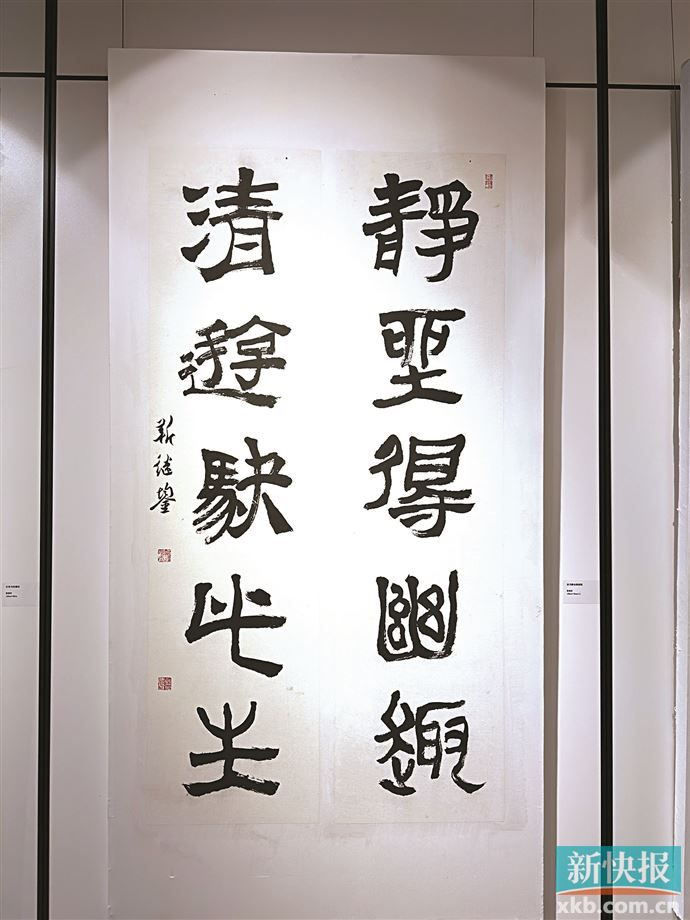 靜坐得幽趣
清遊駃此生
靳继鋆
新快报
xkb.com.cn